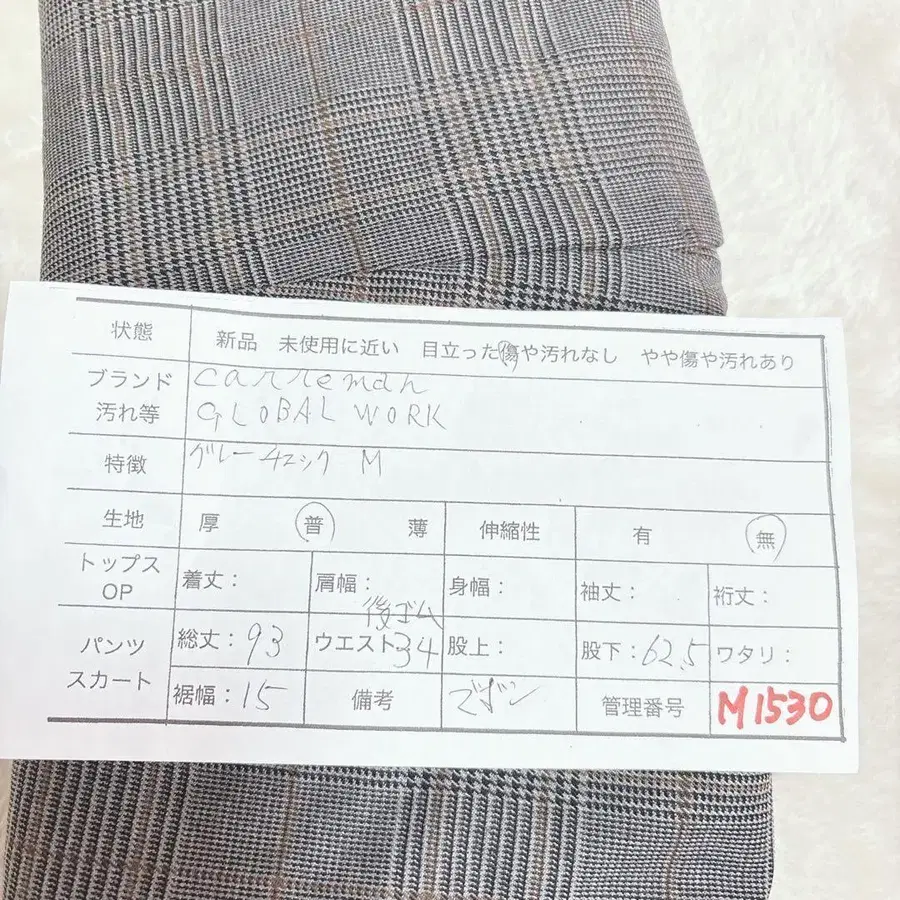 状態 新品 未使用に近い 目立った傷や汚れなし やや傷や汚れあり
ブランド carreman
汚れ等 GLOBAL WORK
特徴 グレーチェック M
生地 厚 普 薄 伸縮性 有 無
トップス OP 着丈: 肩幅: 身幅: 袖丈: 裄丈:
後ゴム
パンツ スカート 総丈:93 ウエスト34 股上: 股下:62.5 ワタリ:
裾幅:15 備考 管理番号 M1530